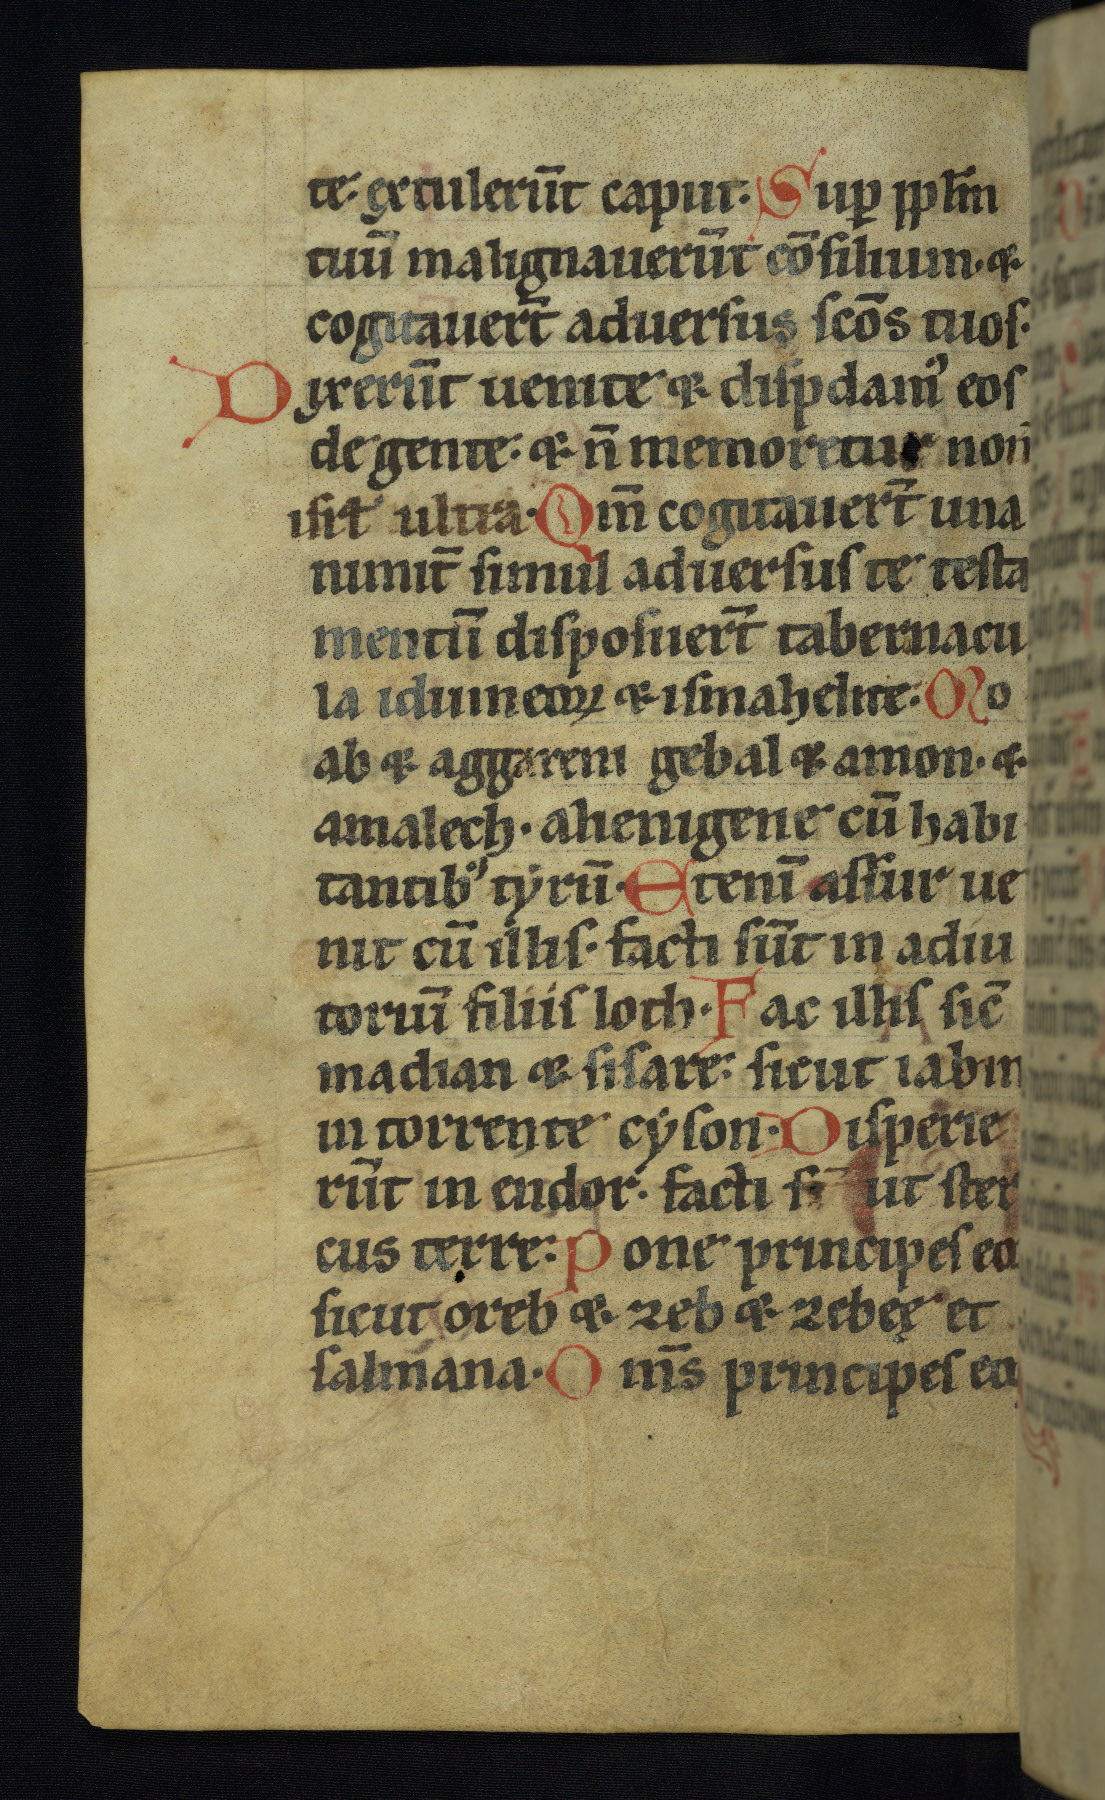 te· extulerūt caput. Sup ꝓplm̄
tuū malignauerūt cōsilium. &
cogitauerт̄ aduersus scōs tuos.
Dixerūt uenite & disꝑdamꝰ eos
de gente· & n̄ memoretur nom̄
isrl̄ ultra. Qm̄ cogitauert̄ una
nimit̄ simul aduersus te testa
mentū disposuert̄ tabernacu
la idumeoꝝ & ismahelite. Mo
ab & aggareni gebal & amon. &
amalech. alienigene cū habi
tantibꝰ tyrū. Etenī assur ue
nit cū illis. facti sūt in adiu
toriū filiis loth. Fac illis sic̄
madian & sisare: sicut iabin
in torrente cyson. Disperie
rūt in endor. facti s ut ster
cus terre: Pone principes eo
sicut oreb & zeb & zebeę et
salmana. Om̄s principes eo